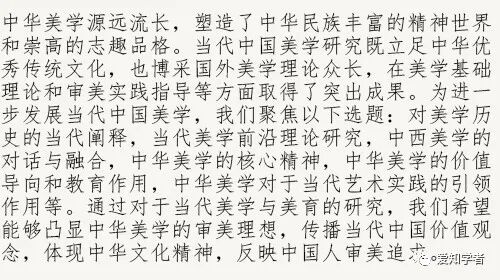 中华美学源远流长，塑造了中华民族丰富的精神世界
和崇高的志趣品格。当代中国美学研究既立足中华优
秀传统文化，也博采国外美学理论众长，在美学基础
理论和审美实践指导等方面取得了突出成果。为进一
步发展当代中国美学，我们聚焦以下选题：对美学历
史的当代阐释，当代美学前沿理论研究，中西美学的
对话与融合，中华美学的核心精神，中华美学的价值
导向和教育作用，中华美学对于当代艺术实践的引领
作用等。通过对于当代美学与美育的研究，我们希望
能够凸显中华美学的审美理想，传播当代中国价值观
念，体现中华文化精神，反映中国人审美追求
爱知学者